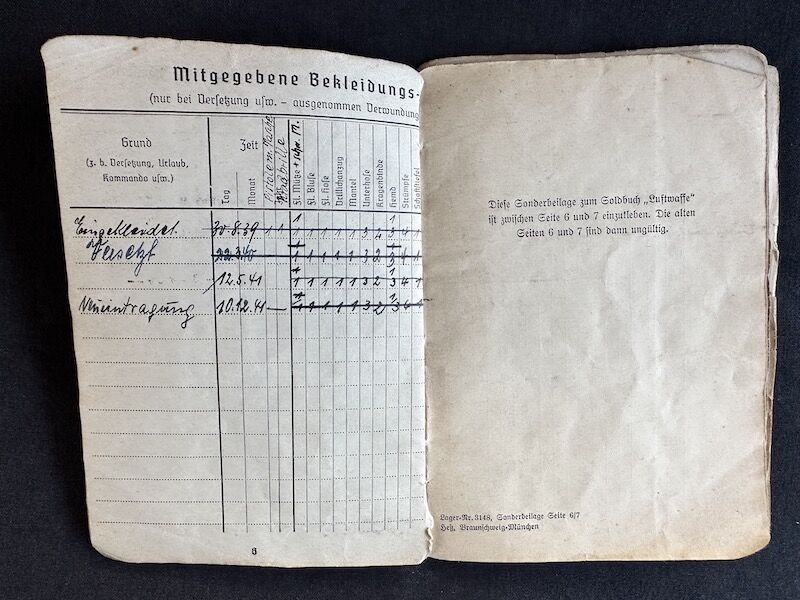 Mitgegebene Bekleidungs-
(nur bei Versetzung usw. – ausgenommen Verwundung
Grund
(z. b. Versetzung, Urlaub,
Kommando usw.)
Zeit
Tag
Monat
Fl. Mütze + schw. M.
Fl. Bluse
Fl. Hose
Drillichanzug
Mantel
Unterhose
Kragenbinde
Hemd
Strümpfe
Schaftstiefel
Eingekleidet 30.8.39 1 1 1 1 1 1 1 3 2 3 4 1
Versetzt 22.3.40 1 1 1 1 1 3 2 3 4 1
12.5.41 1 1 1 1 1 3 2 3 4 1
Neueintragung 10.12.41 — 1 1 1 1 1 3 2 3
6
Diese Sonderbeilage zum Soldbuch „Luftwaffe“
ist zwischen Seite 6 und 7 einzukleben. Die alten
Seiten 6 und 7 sind dann ungültig.
Lager-Nr. 3148, Sonderbeilage Seite 6/7
Heß, Braunschweig-München